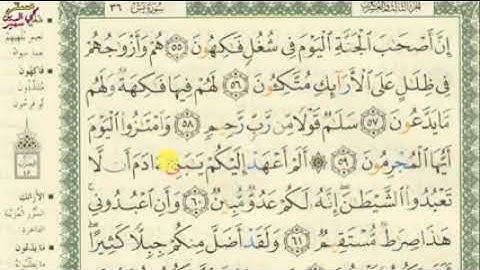 الجزء الثالث والعشرون
سورة يس ٣٦
إِنَّ أَصْحَٰبَ ٱلْجَنَّةِ ٱلْيَوْمَ فِى شُغُلٍ فَٰكِهُونَ ٥٥ هُمْ وَأَزْوَٰجُهُمْ
فِى ظِلَٰلٍ عَلَى ٱلْأَرَآئِكِ مُتَّكِـُٔونَ ٥٦ لَهُمْ فِيهَا فَٰكِهَةٌ وَلَهُم
مَّا يَدَّعُونَ ٥٧ سَلَٰمٌ قَوْلًا مِّن رَّبٍّ رَّحِيمٍ ٥٨ وَٱمْتَٰزُوا۟ ٱلْيَوْمَ
أَيُّهَا ٱلْمُجْرِمُونَ ٥٩ ۞ أَلَمْ أَعْهَدْ إِلَيْكُمْ يَٰبَنِىٓ ءَادَمَ أَن لَّا
تَعْبُدُوا۟ ٱلشَّيْطَٰنَ إِنَّهُۥ لَكُمْ عَدُوٌّ مُّبِينٌ ٦٠ وَأَنِ ٱعْبُدُونِى
هَٰذَا صِرَٰطٌ مُّسْتَقِيمٌ ٦١ وَلَقَدْ أَضَلَّ مِنكُمْ جِبِلًّا كَثِيرًا
فاكهون
الأرائك
ما يدعون